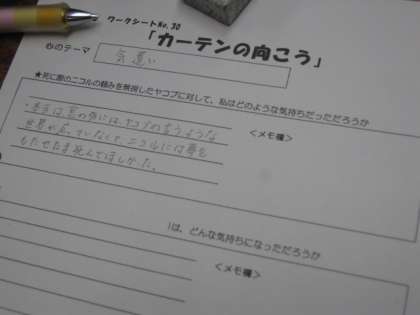 ワークシートNo.30
「カーテンの向こう」
心のテーマ
気遣い
★死に際のニコルの頼みを無視したヤコブに対して、私はどのような気持ちだっただろうか
＜メモ欄＞
・本当は窓の外には、ヤコブの言うような
世界が広がっていなくて、ニコルには夢を
もたせたまま死んでほしかった。
は、どんな気持ちになっただろうか
＜メモ欄＞